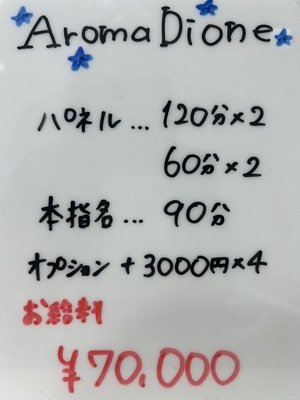 Aroma Dione
パネル... 120分×2
60分×2
本指名... 90分
オプション +3000円×4
お給料
¥70,000